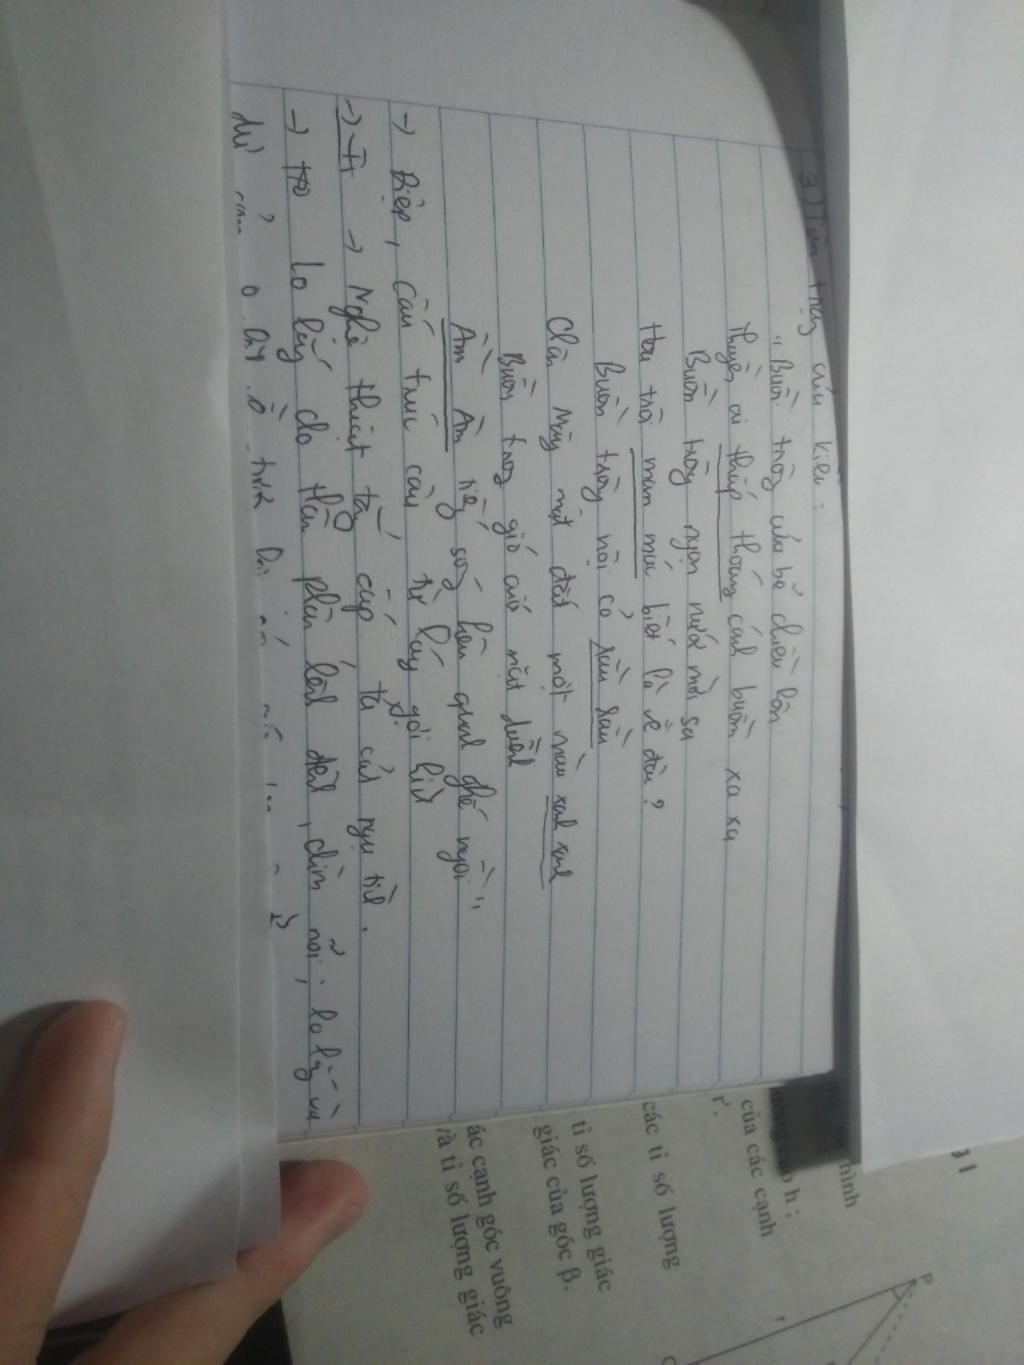 3) Tâm trạng của Kiều:
"Buồn trông cửa bể chiều hôm
Thuyền ai thấp thoáng cánh buồm xa xa
Buồn trông ngọn nước mới sa
Hoa trôi man mác biết là về đâu?
Buồn trông nội cỏ rầu rầu
Chân mây mặt đất một màu xanh xanh
Buồn trông gió cuốn mặt duềnh
Ầm ầm tiếng sóng kêu quanh ghế ngồi"
→ Điệp, cấu trúc câu, từ láy gợi hình
→ → Nghệ thuật tăng cấp tả cảnh ngụ tình.
→ lo lắng do thân phận lênh đênh, chìm nổi; lo lắng và
hình
h :
của các cạnh
các tỉ số lượng
tỉ số lượng giác
giác của góc β.
ác cạnh góc vuông
và tỉ số lượng giác
P
r